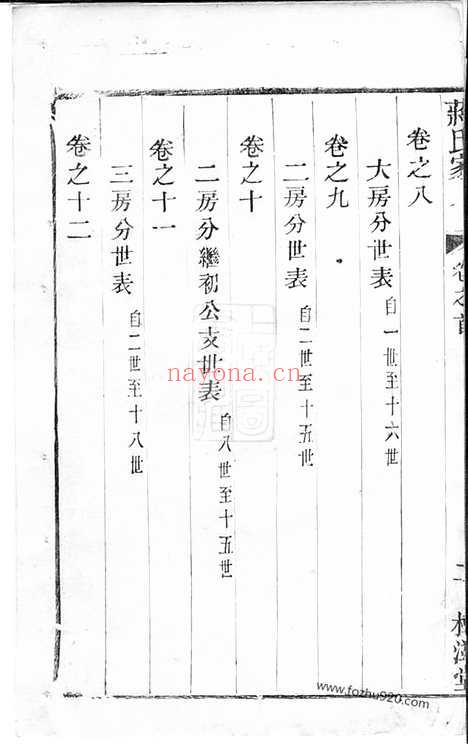 蔣氏家
卷之首
二
卷之八
大房分世表 自一世至十六世
卷之九
二房分世表 自二世至十五世
卷之十
二房分繼初公支世表 自八世至十五世
卷之十一
三房分世表 自二世至十八世
卷之十二
nayona.cn
www.fozhu920.com